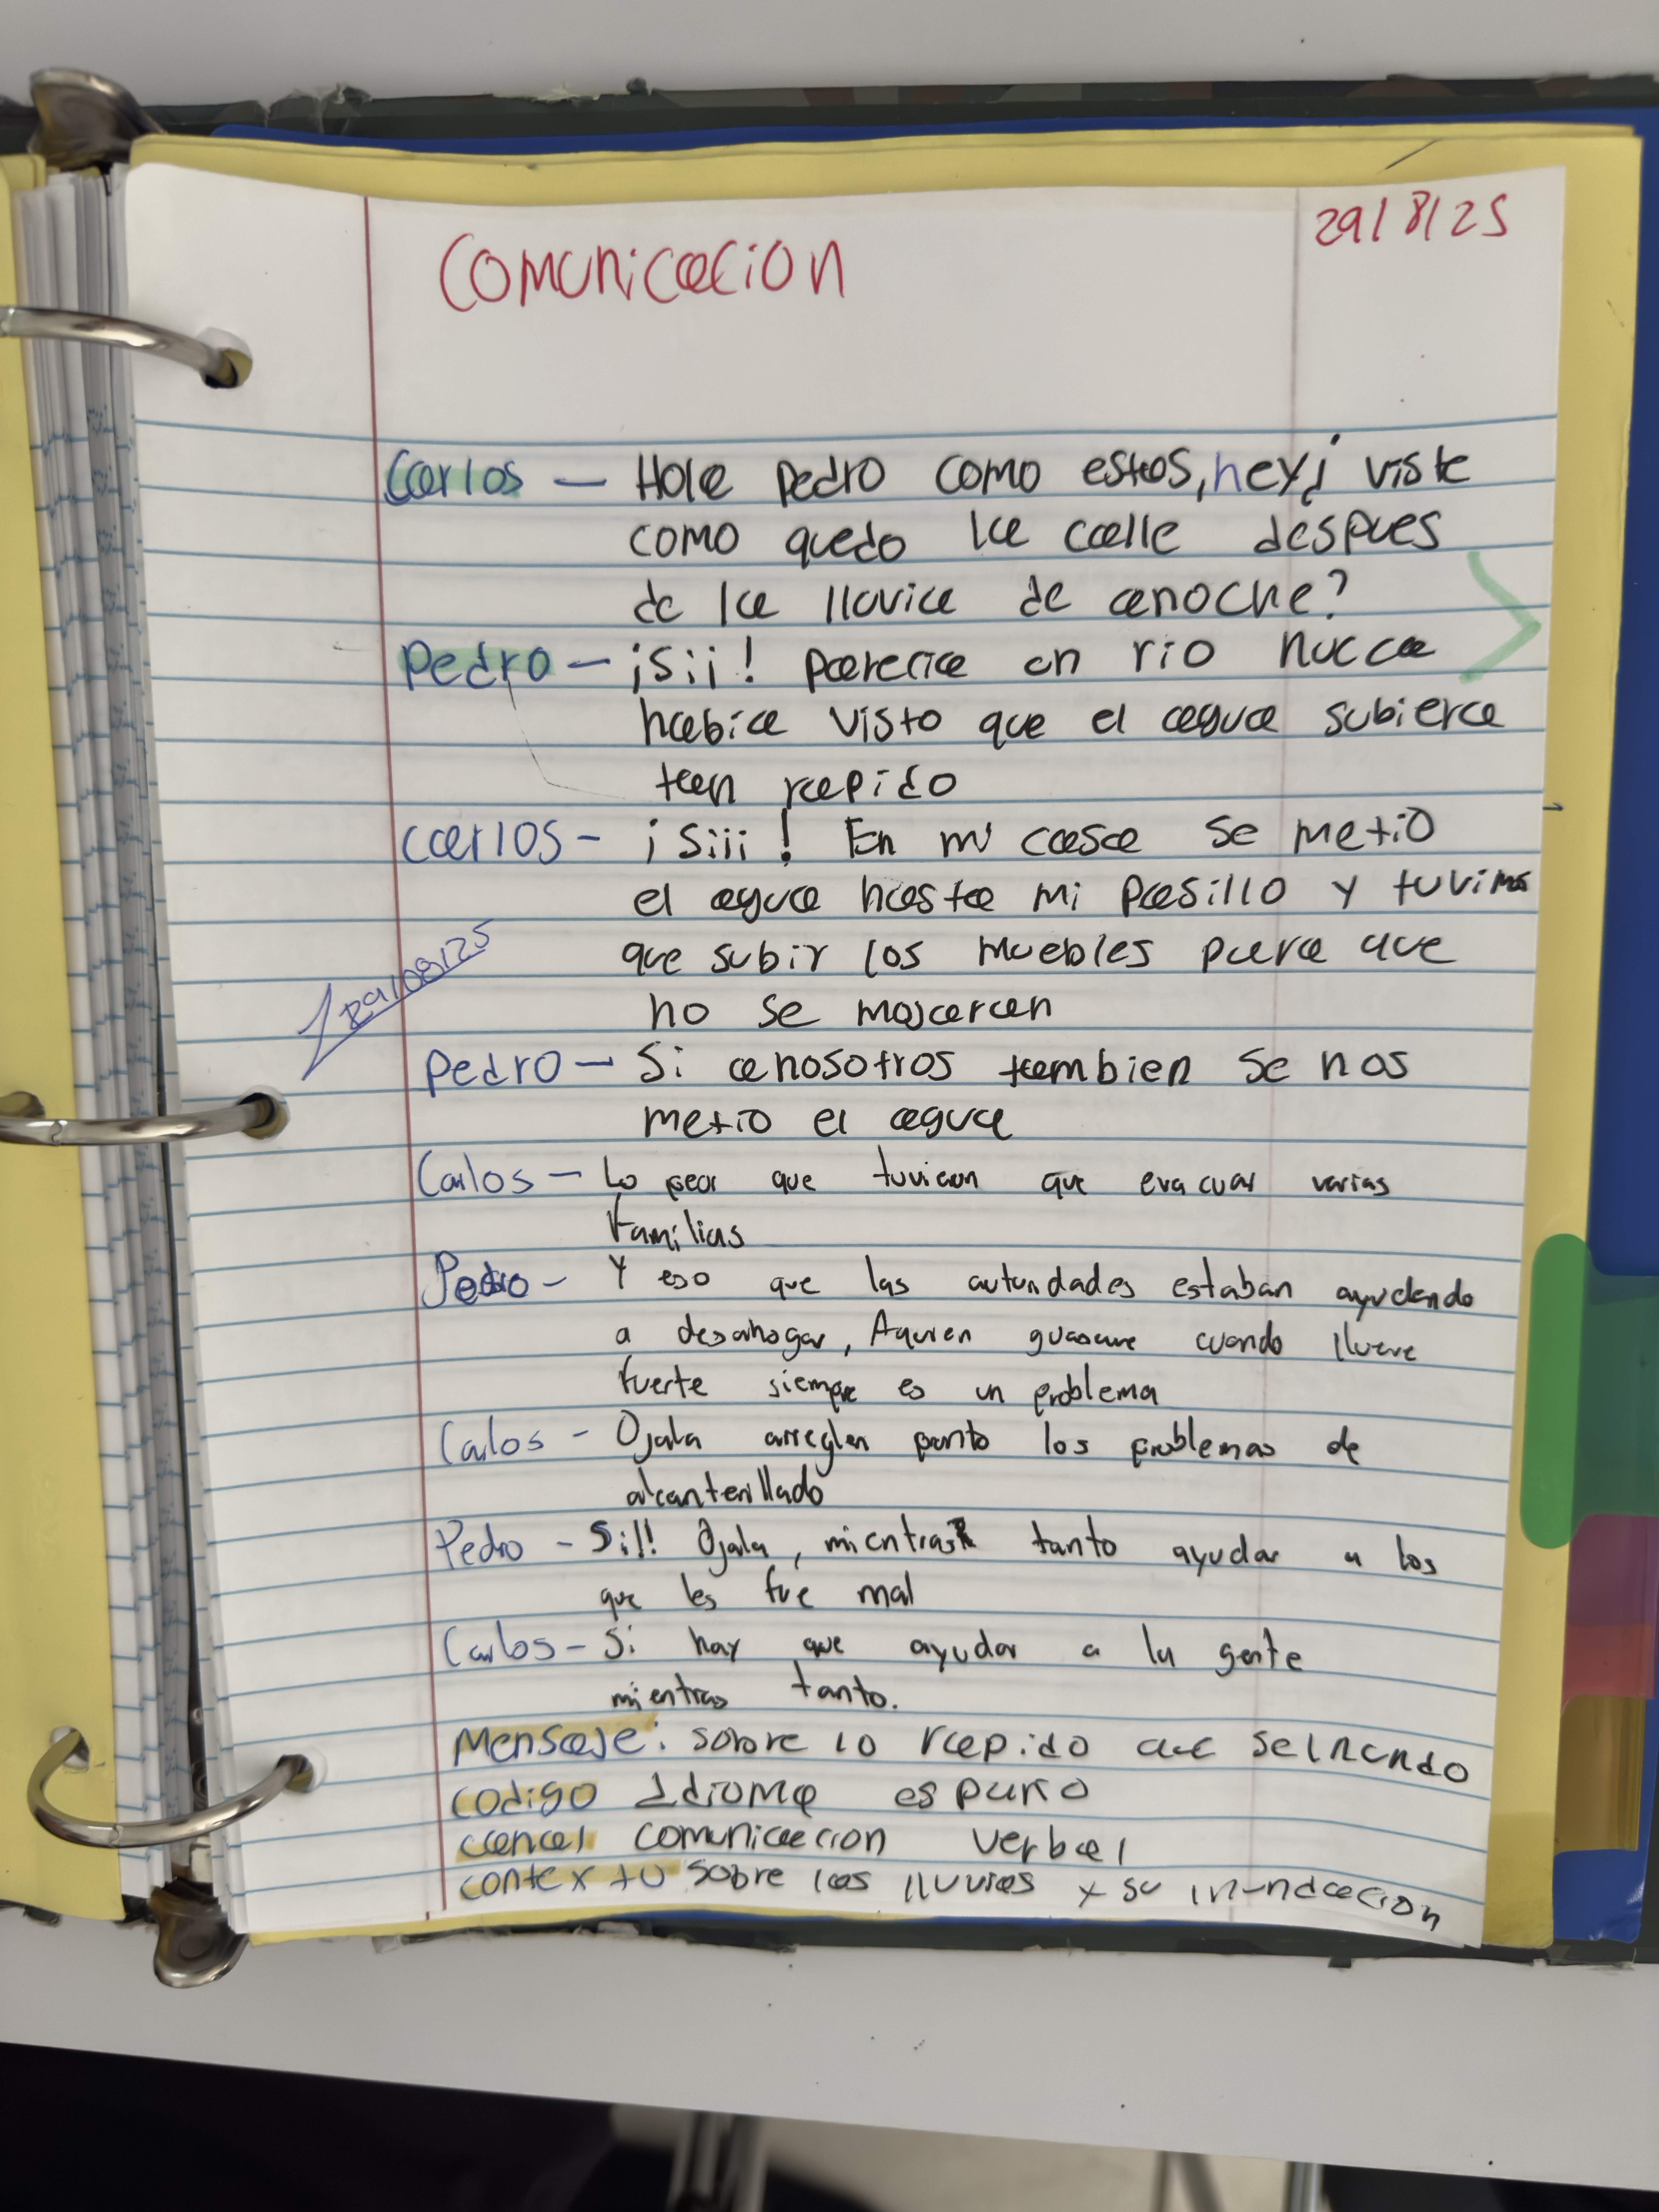 29/8/25
Comunicacion
Carlos — Hola Pedro como estas, hey¿ viste
como quedo la calle despues
de la lluvia de anoche?
Pedro — ¡Sii! parecia un rio nucca
habia visto que el agua subiera
tan rapido
Carlos - ¡Siii! En mi casa se metio
el agua hasta mi pasillo y tuvimos
que subir los muebles para que
no se mojaran
29/08/25
Pedro — Si anosotros tambien se nos
metio el agua
Carlos — Lo peor que tuvieron que evacuar varias
familias
Pedro - Y eso que las autoridades estaban ayudando
a desahogar, Aquien cuando llueve
fuerte siempre es un problema
Carlos - Ojala arreglen pronto los problemas de
alcantarillado
Pedro - Si!! Ojala, mientras tanto ayudar a los
que les fue mal
Carlos - Si hay que ayudar a la gente
mientras tanto.
Mensaje: sobre lo rapido que
codigo Idioma
canal comunicacion verbal
contexto sobre las lluvias y su